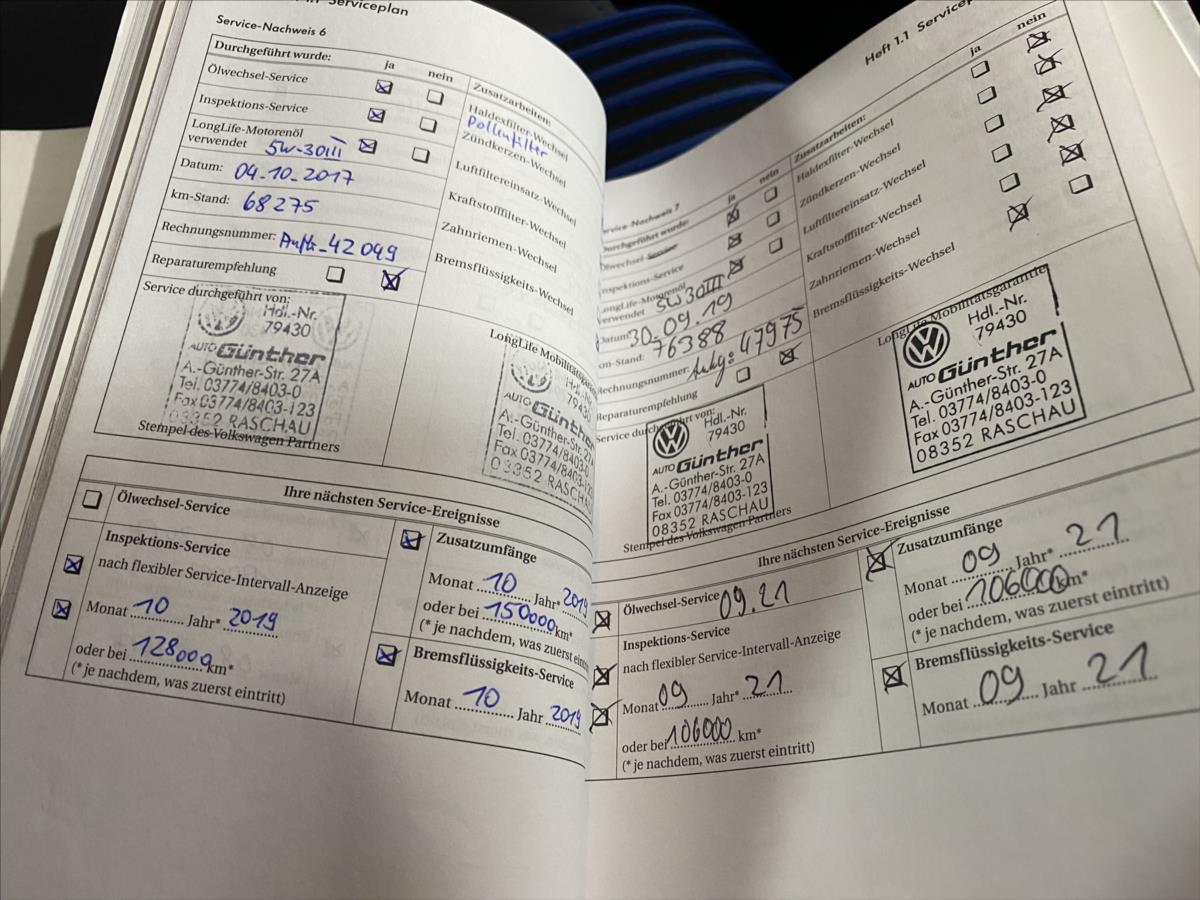 Serviceplan
Service-Nachweis 6
Durchgeführt wurde: ja nein
Ölwechsel-Service
Inspektions-Service
LongLife-Motorenöl
verwendet 5W-30III
Datum: 04.10.2017
km-Stand: 68275
Rechnungsnummer: Auftr. 42099
Reparaturempfehlung
Service durchgeführt von:
Hdl.-Nr.
79430
AUTO Günther
A.-Günther-Str. 27A
Tel. 03774/8403-0
Fax 03774/8403-123
08352 RASCHAU
Stempel des Volkswagen Partners
Zusatzarbeiten:
Haldexfilter-Wechsel
Pollenfilter
Zündkerzen-Wechsel
Luftfiltereinsatz-Wechsel
Kraftstofffilter-Wechsel
Zahnriemen-Wechsel
Bremsflüssigkeits-Wechsel
LongLife Mobilitätsgarantie
Hdl.-Nr.
79430
AUTO Günther
A.-Günther-Str.
Tel. 03774/8403-0
Fax 03774/8403-123
08352 RASCHAU
Ihre nächsten Service-Ereignisse
Ölwechsel-Service
Inspektions-Service
nach flexibler Service-Intervall-Anzeige
Monat 10 Jahr* 2019
oder bei 128000 km*
(* je nachdem, was zuerst eintritt)
Zusatzumfänge
Monat 10 Jahr* 2019
oder bei 150000 km*
(* je nachdem, was zuerst eintritt)
Bremsflüssigkeits-Service
Monat 10 Jahr 2019
Heft 1.1 Serviceplan
Service-Nachweis 7
Durchgeführt wurde: ja nein
Ölwechsel-Service
Inspektions-Service
LongLife-Motorenöl
verwendet 5W30III
Datum: 30.09.19
km-Stand: 76388
Rechnungsnummer: 47975
Reparaturempfehlung
Service durchgeführt von:
Hdl.-Nr.
79430
AUTO Günther
A.-Günther-Str. 27A
Tel. 03774/8403-0
Fax 03774/8403-123
08352 RASCHAU
Stempel des Volkswagen Partners
Zusatzarbeiten: ja nein
Haldexfilter-Wechsel
Zündkerzen-Wechsel
Luftfiltereinsatz-Wechsel
Kraftstofffilter-Wechsel
Zahnriemen-Wechsel
Bremsflüssigkeits-Wechsel
LongLife Mobilitätsgarantie
Hdl.-Nr.
79430
AUTO Günther
A.-Günther-Str. 27A
Tel. 03774/8403-0
Fax 03774/8403-123
08352 RASCHAU
Ihre nächsten Service-Ereignisse
Ölwechsel-Service 09.21
Inspektions-Service
nach flexibler Service-Intervall-Anzeige
Monat 09 Jahr* 21
oder bei 106000 km*
(* je nachdem, was zuerst eintritt)
Zusatzumfänge
Monat 09 Jahr* 21
oder bei 106000 km*
(* je nachdem, was zuerst eintritt)
Bremsflüssigkeits-Service
Monat 09 Jahr 21